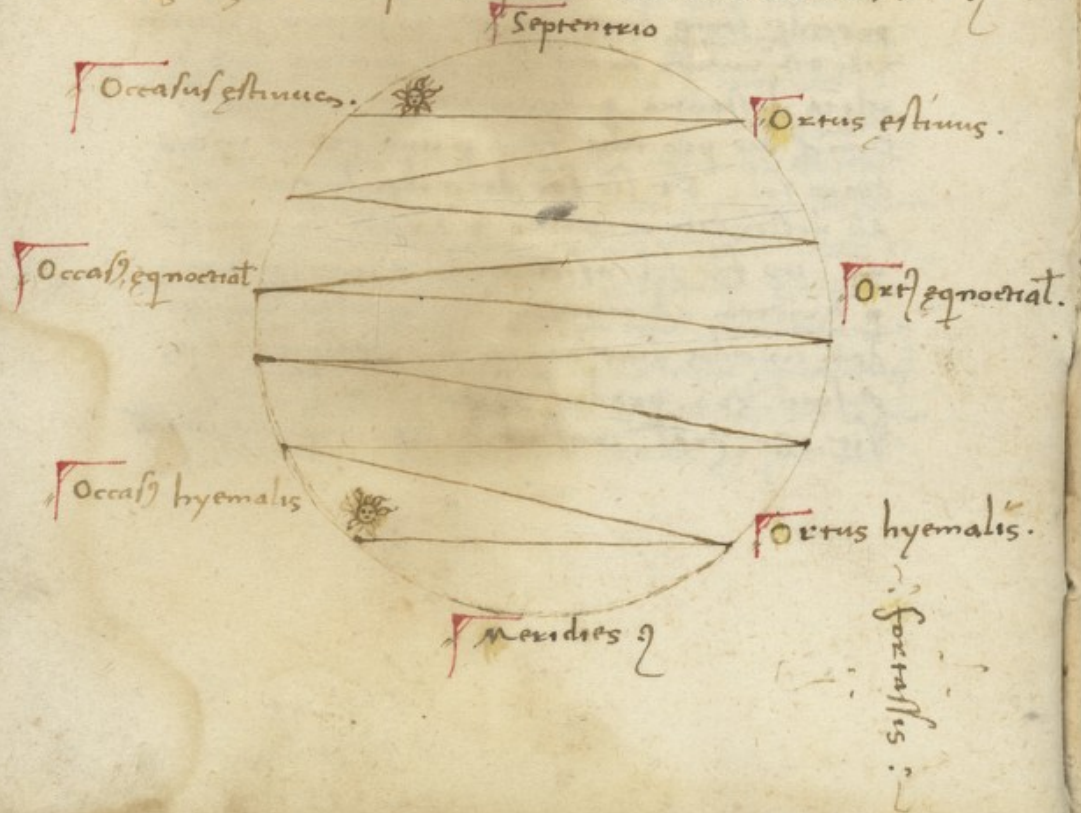 Septentrio
Occasus estiuus.
Ortus estiuus.
Occasꝰ ęqnoctial
Ortꝰ ęqnoctial.
Occasꝰ hyemalis
Ortus hyemalis.
Meridies
fortassis